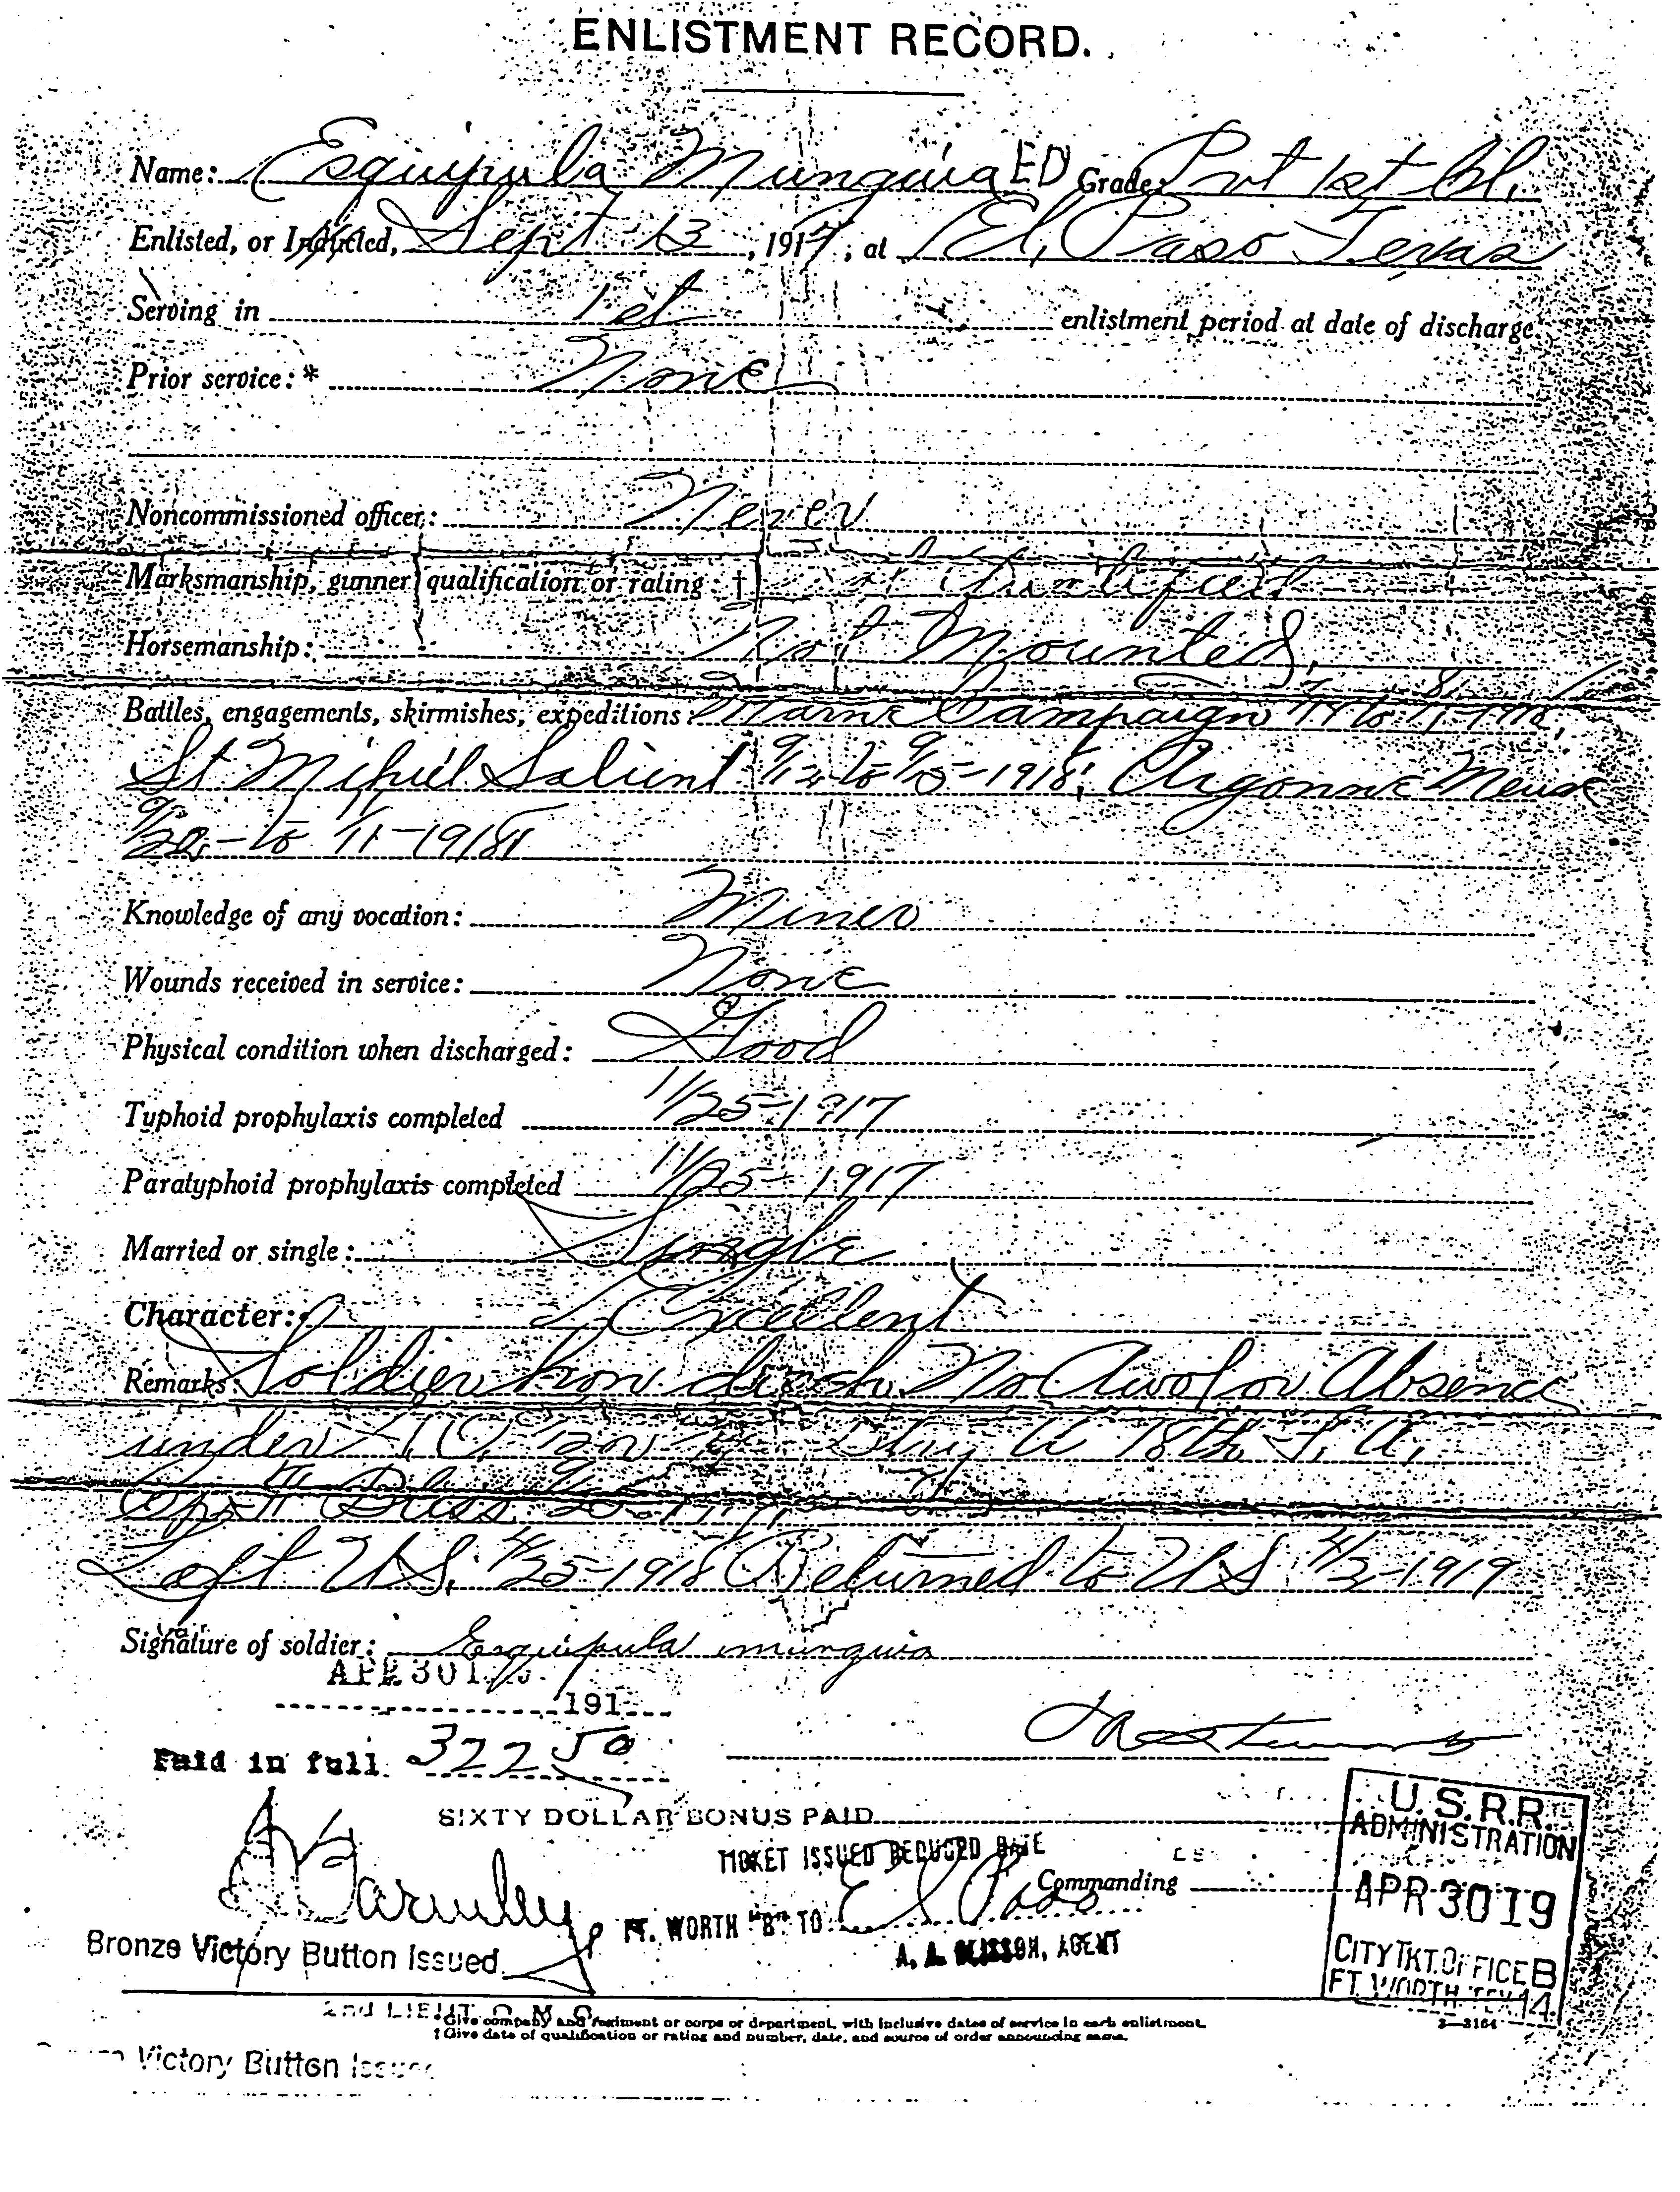 ENLISTMENT RECORD.
Name: Esquipula Munguia ED Grade: Pvt 1st Cl.
Enlisted, or Inducted, Sept 13, 1917, at El Paso Texas
Serving in 1st enlistment period at date of discharge.
Prior service:* None
Noncommissioned officer: Never
Marksmanship, gunner qualification or rating: † Not Qualified
Horsemanship: Not Mounted.
Battles, engagements, skirmishes, expeditions: Marne Campaign
St Mihiel Salient 9/12 to 9/15-1918; Argonne Meuse
9/20 to 11/11-1918
Knowledge of any vocation: Miner
Wounds received in service: None
Physical condition when discharged: Good
Typhoid prophylaxis completed 11/25-1917
Paratyphoid prophylaxis completed 11/25-1917
Married or single: Single
Character: Excellent
Remarks: Soldier hon. disch. No Awol or Absence
under G.O. 18th F.A.
Left U.S. 4/25-1918 Returned to U S 4/3-1919
Signature of soldier: Esquipula munguia
APR 30
191
Paid in full 322 50
SIXTY DOLLAR BONUS PAID
U.S.R.R.
ADMINISTRATION
APR 30 19
CITY TKT. OFFICE B
FT. WORTH TEX 14
TICKET ISSUED REDUCED RATE
Commanding
FT. WORTH "B" TO El Paso
AGENT
Bronze Victory Button Issued
2nd LIEUT. Q. M. C.
*Give company and regiment or corps or department, with inclusive dates of service in each enlistment.
†Give date of qualification or rating and number, date, and source of order announcing same.
3—3164
Victory Button Issued